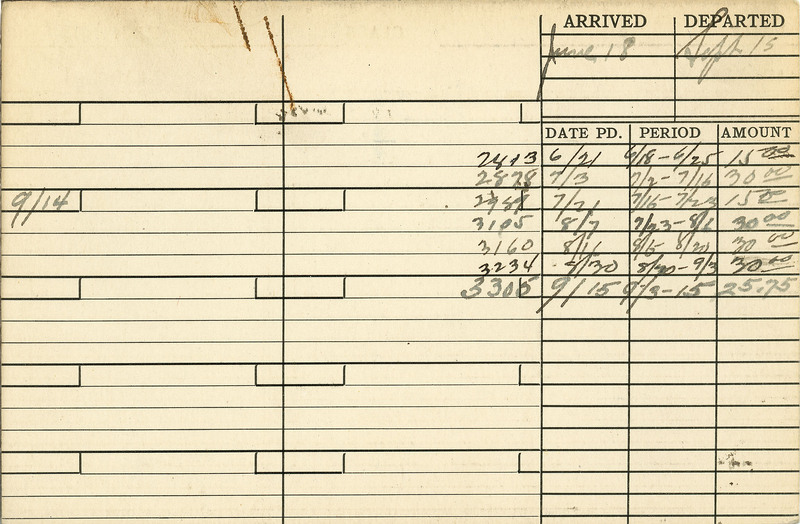 ARRIVED DEPARTED
June 18 Sept 15
DATE PD. PERIOD AMOUNT
6/21 6/18-6/25 15 00
2878 7/3 7/2-7/16 30 00
9/14 7/21 7/16-7/23 15 00
3105 8/7 7/23-8/6 30 00
3160 8/11 8/20 30 00
3234 8/30 8/20-9/3 30 00
3305 9/15 9/3-15 25.75